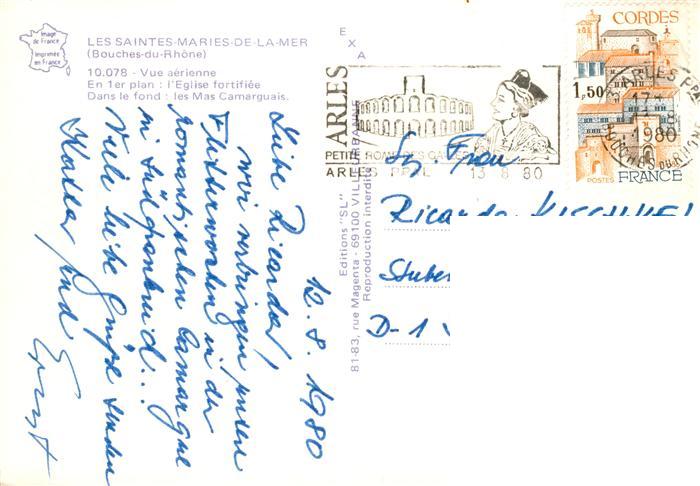 Image de France
Imprimée en France
LES SAINTES-MARIES-DE-LA-MER
(Bouches-du-Rhône)
10.078 - Vue aérienne
En 1er plan : l'Eglise fortifiée
Dans le fond : les Mas Camarguais.
EXA
Editions "SL"
81-83, rue Magenta - 69100 VILLEURBANNE
Reproduction interdite
ARLES
PETITE ROME DES GAULES
ARLES PPAL 13 8 80
CORDES
1,50
POSTES FRANCE
ARLES PPAL
1980
BOUCHES DU RHONE
12.8.1980
Liebe Ricarda,
wir verbringen unsere
Flitterwochen in der
romantischen Camargue
in Südfrankreich...
Viele liebe Grüße senden
und
Ernst
Frau
Ricarda
D-1